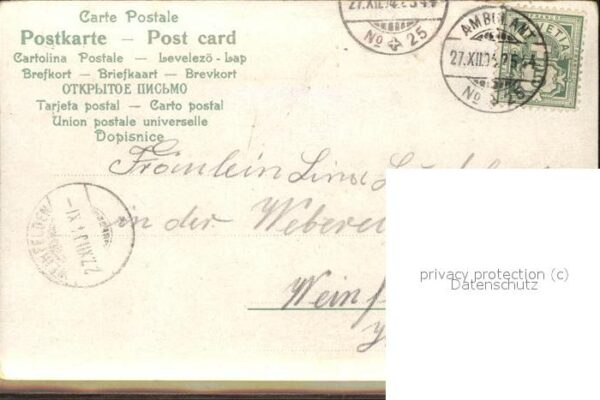 Carte Postale
Postkarte — Post card
Cartolina Postale — Levelezö-Lap
Brefkort — Briefkaart — Brevkort
ОТКРЫТОЕ ПИСЬМО
Tarjeta postal — Carto postal
Union postale universelle
Dopisnice
No 25
AMBULANT
No 25
HELVETIA
Fräulein Lina
in der Weberei
Wein
privacy protection (c)
Datenschutz